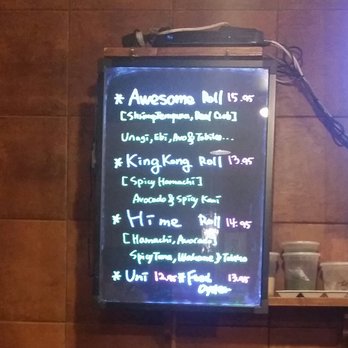 * Awesome Roll 15.95
[Shrimp Tempura, Real Crab]
Unagi, Ebi, Avo & Tobiko...
* King Kong Roll 13.95
[Spicy Hamachi]
Avocado & Spicy Kani
* Hime Roll 14.95
[Hamachi, Avocado]
Spicy Tuna, Wakame & Tobiko
* Uni 12.95 * 13.95
Oyster